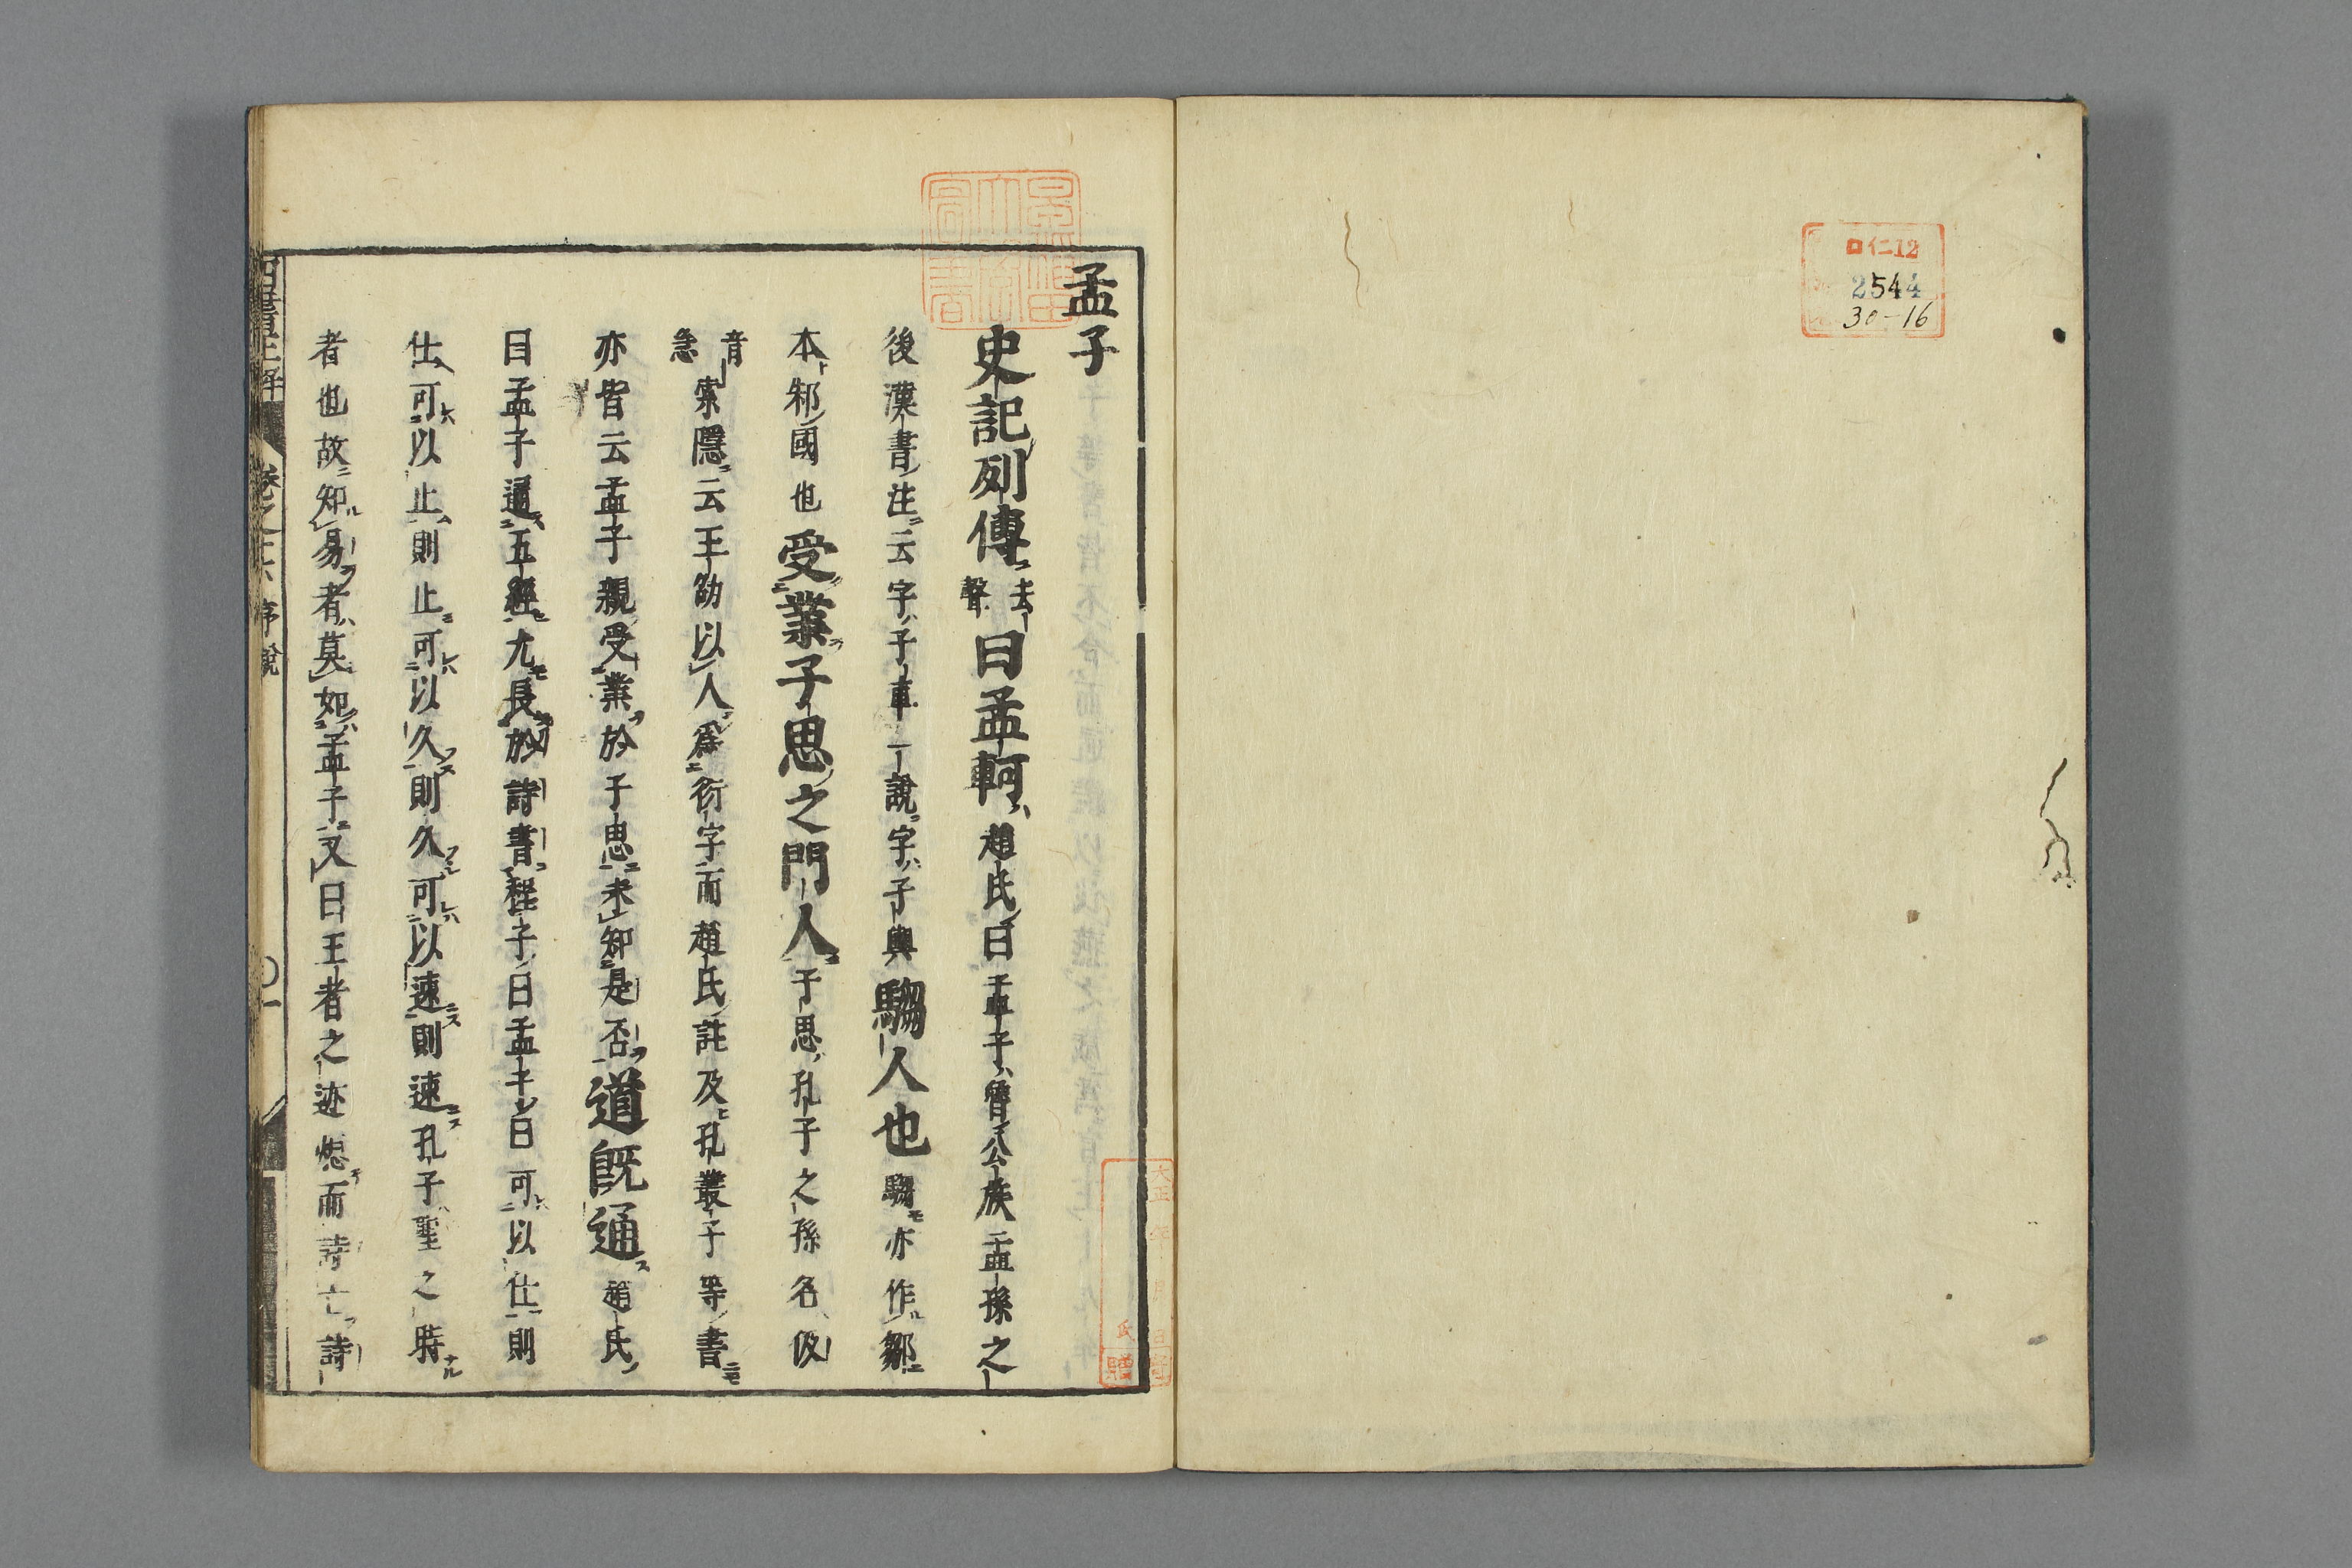 口仁12
2544
30-16
孟子
史記列傳去聲曰孟軻趙氏曰孟子魯公族孟孫之
後漢書注云字子車一說字子輿騶人也騶亦作鄒
本邾國也受業子思之門人子思孔子之孫名伋
音急索隱云王劭以人爲衍字而趙氏註及孔叢子等書
亦皆云孟子親受業於子思未知是否道既通趙氏
曰孟子通五經尤長於詩書程子曰孟子曰可以仕則
仕可以止則止可以久則久可以速則速孔子聖之時
者也故知易者莫如孟子又曰王者之迹熄而詩亡詩
卷之十六 序說